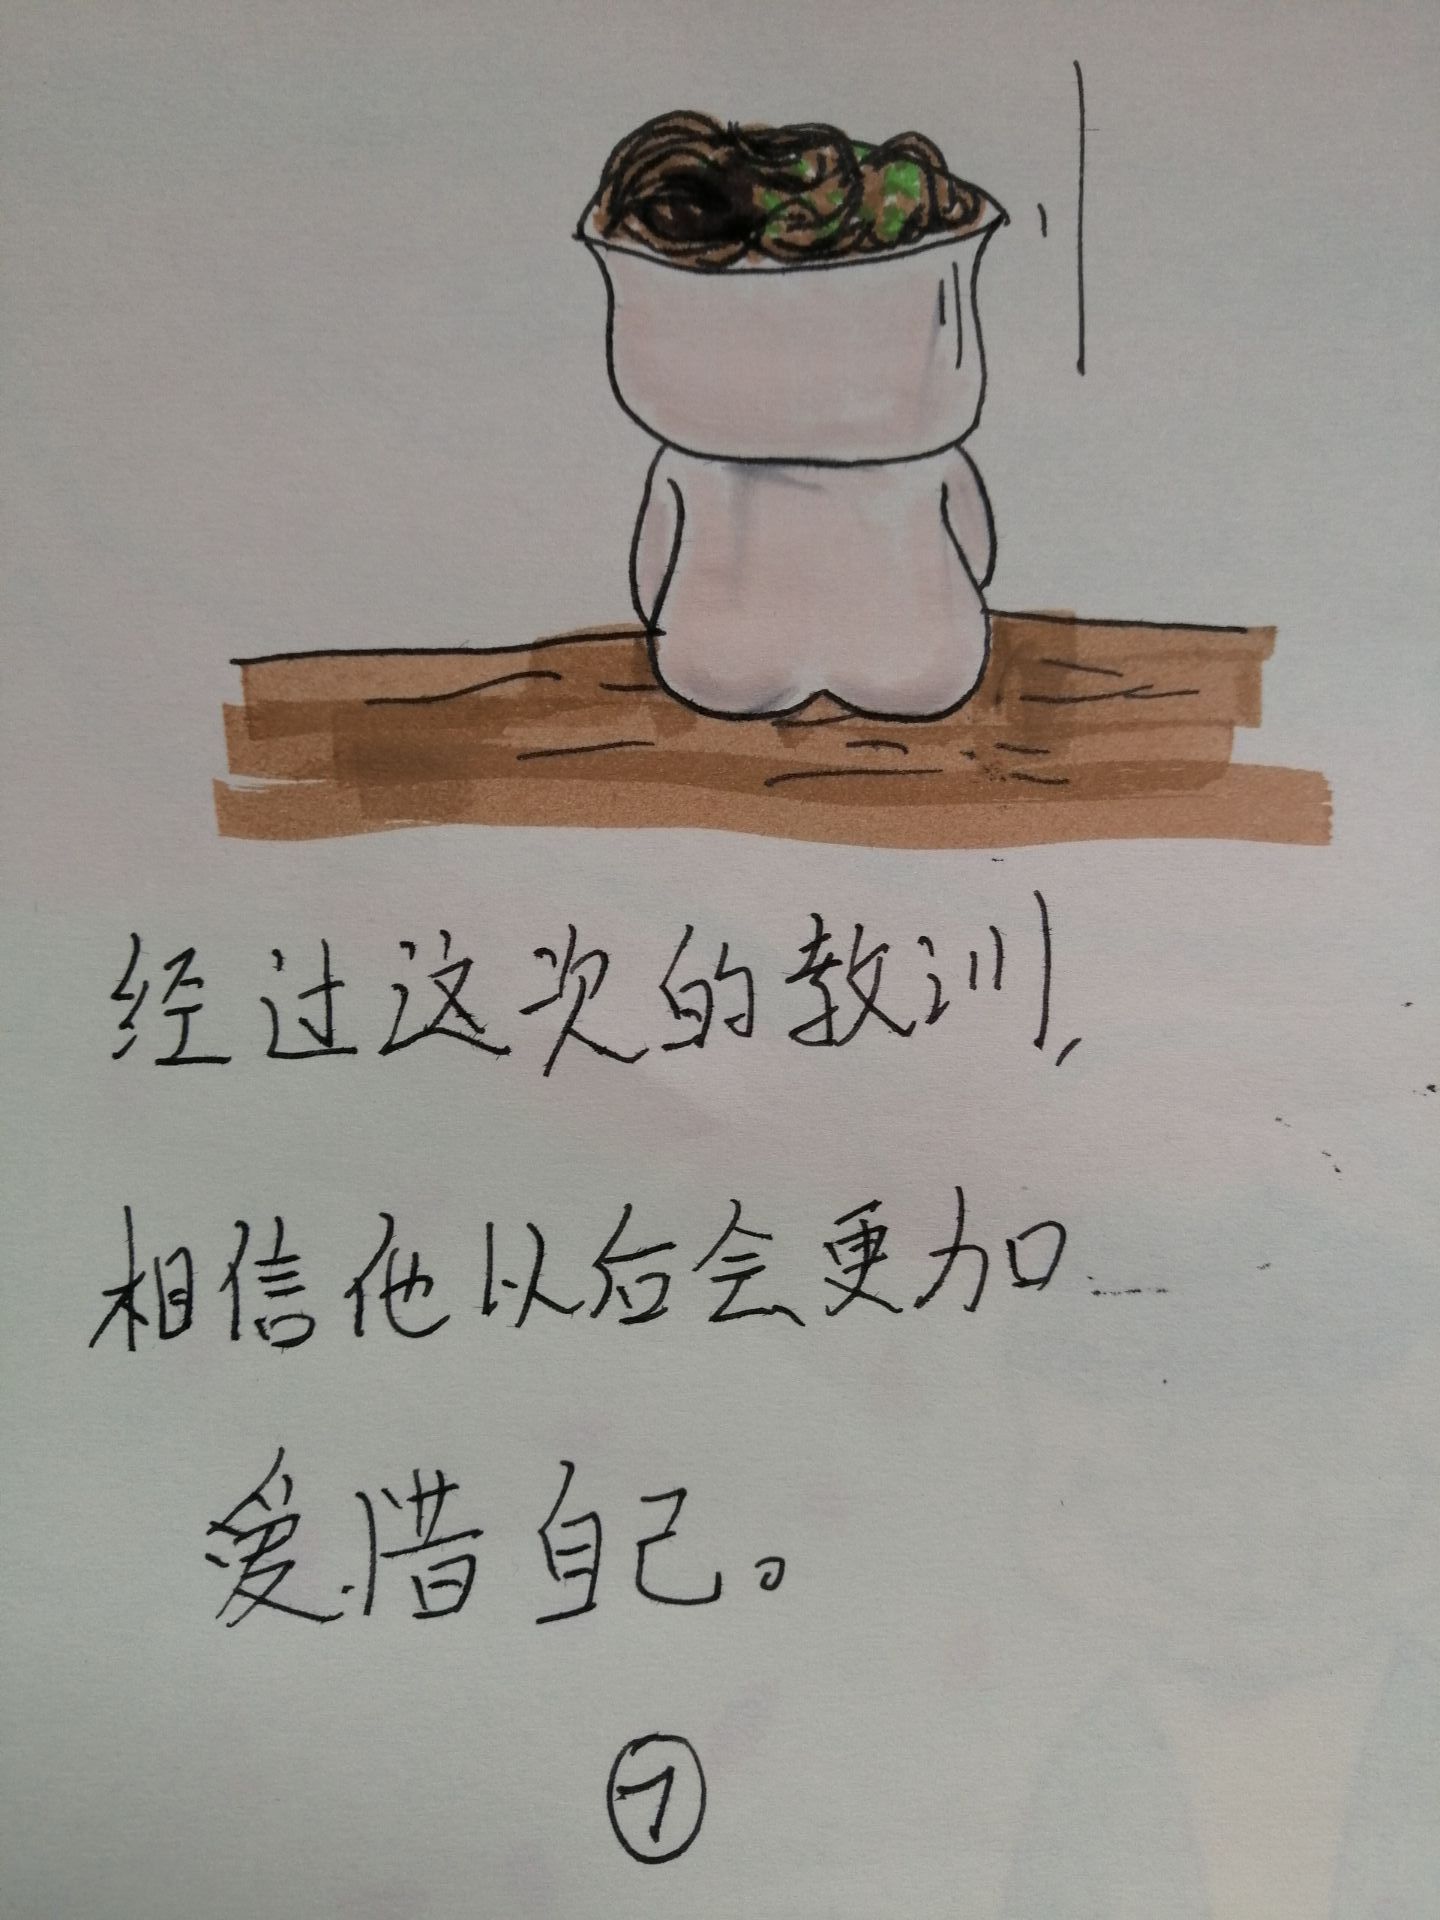 经过这次的教训,
相信他以后会更加
爱惜自己。
7